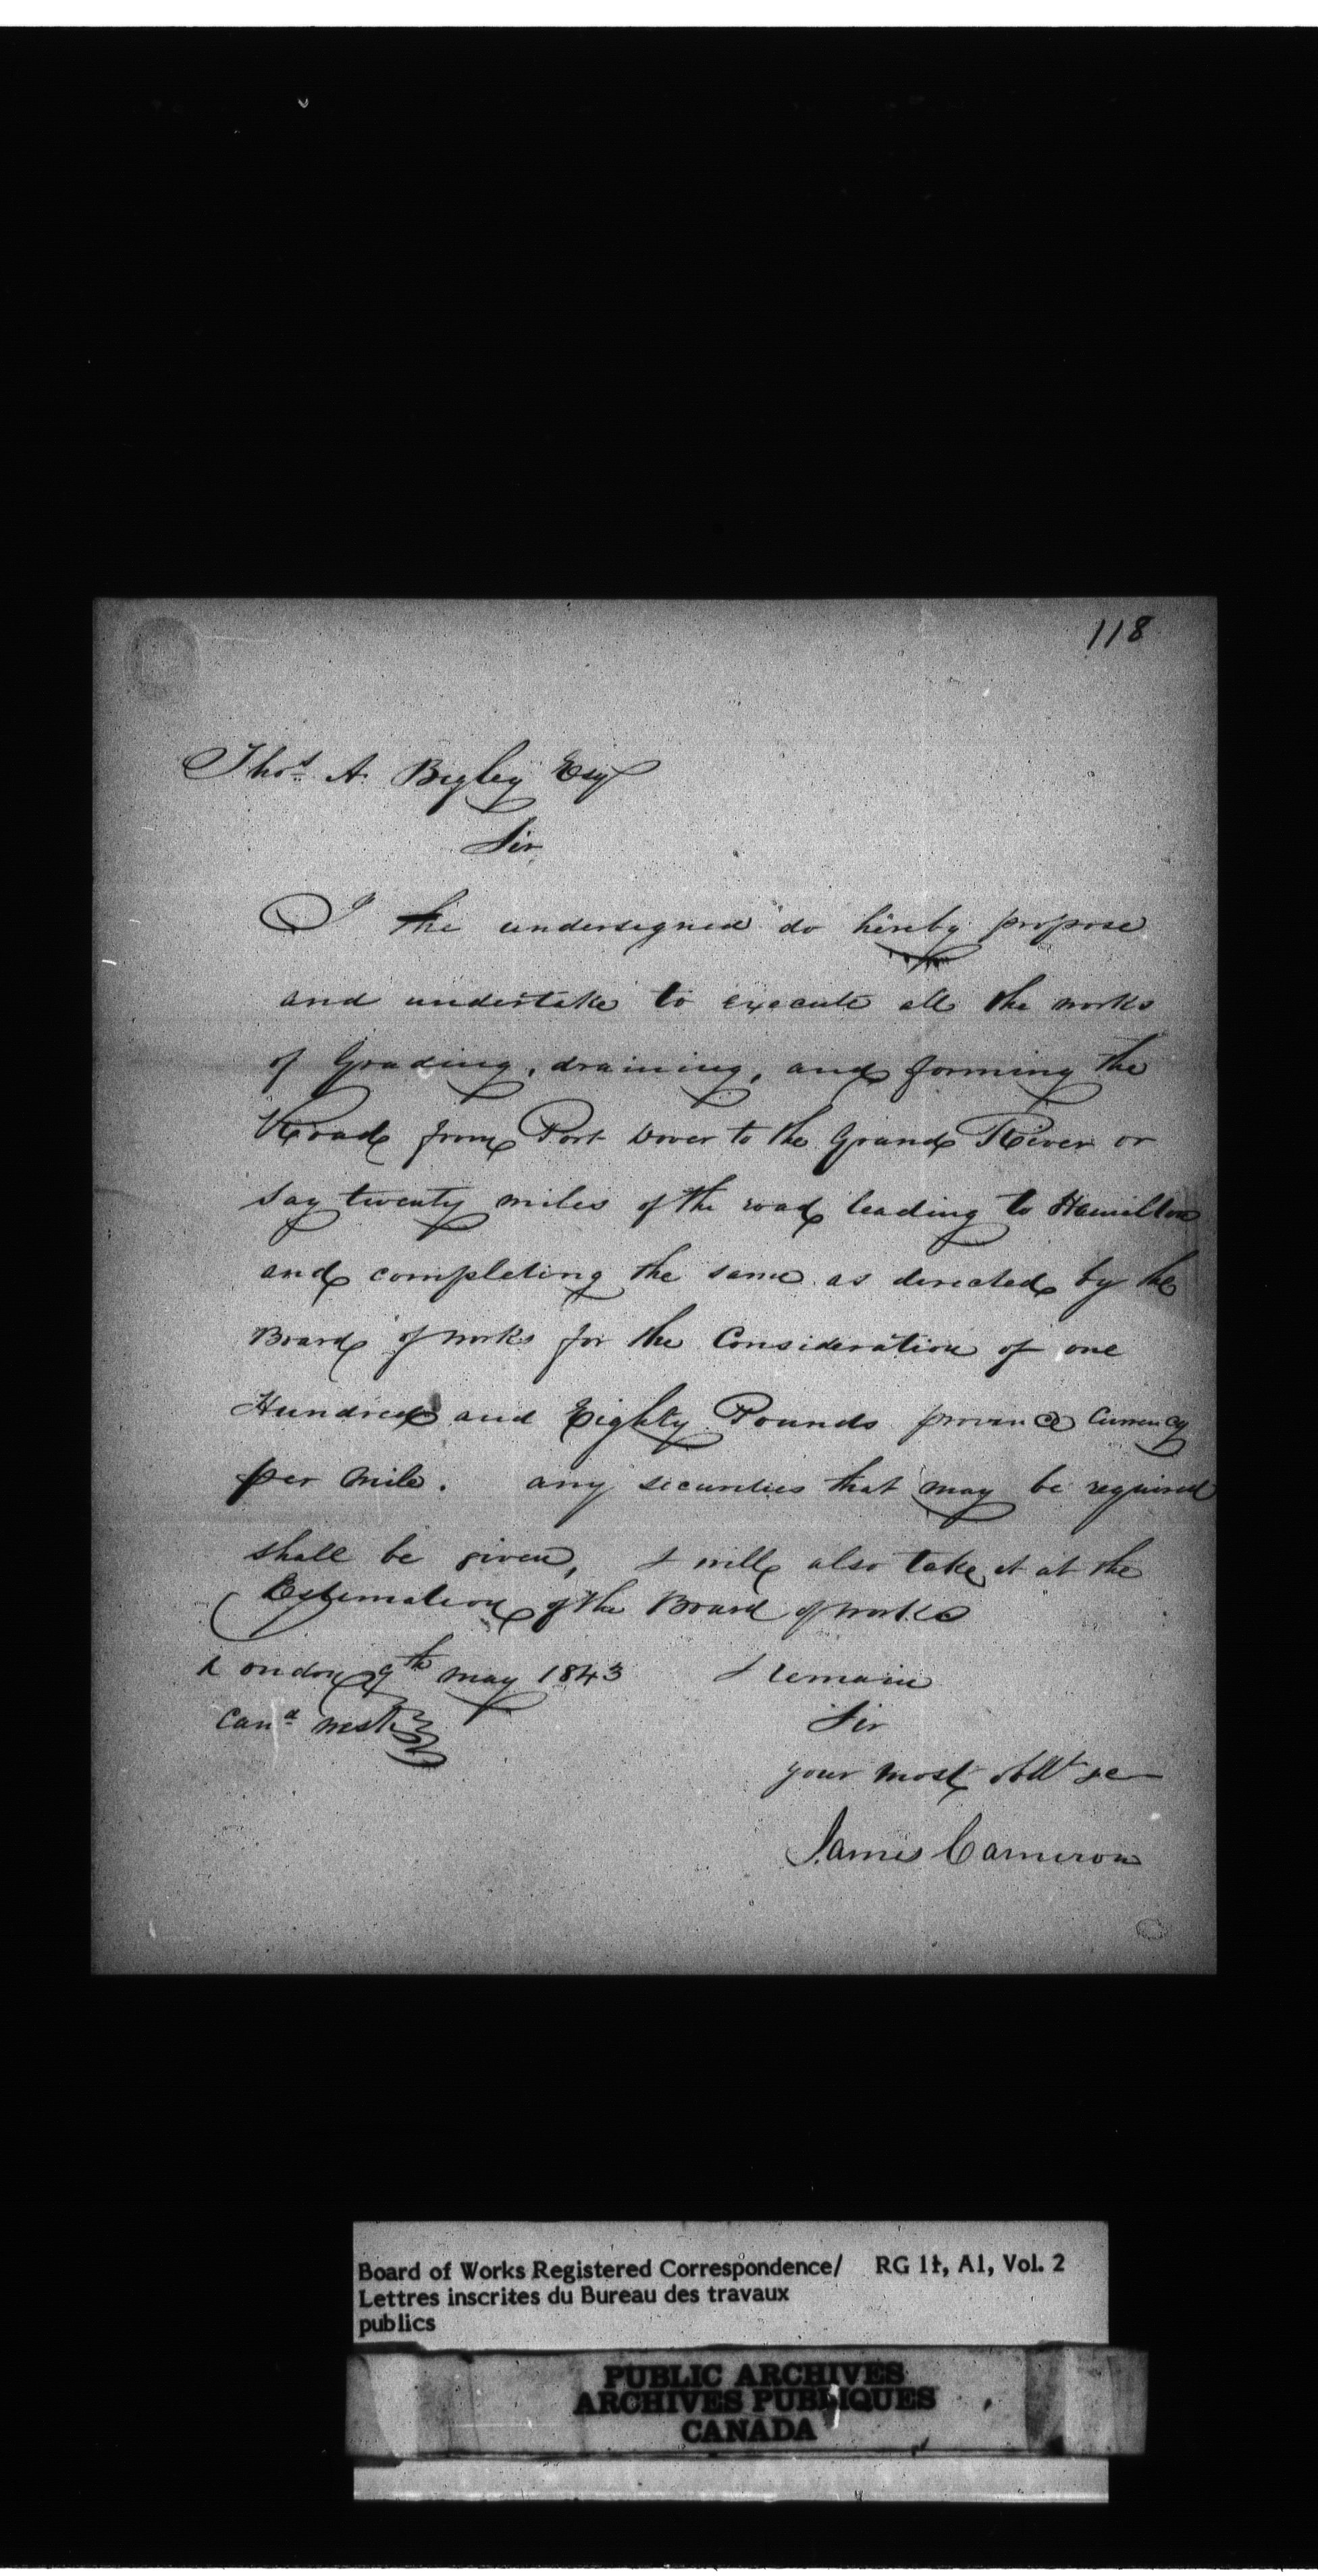 118
Thos. A. Begley Esqr
Sir
I the undersigned do hereby propose
and undertake to execute all the works
of Grading, draining, and forming the
Road from Port Dover to the Grand River or
say twenty miles of the road leading to Hamilton
and completing the same as directed by the
Board of works for the Consideration of one
Hundred and Eighty Pounds province Currency
per mile. any securities that may be required
shall be given, I will also take it at the
Estimation of the Board of works
London 9th may 1843 I remain
Cana west Sir
your most Obdt se
James Cameron
Board of Works Registered Correspondence/ RG 11, A1, Vol. 2
Lettres inscrites du Bureau des travaux
publics
PUBLIC ARCHIVES
ARCHIVES PUBLIQUES
CANADA